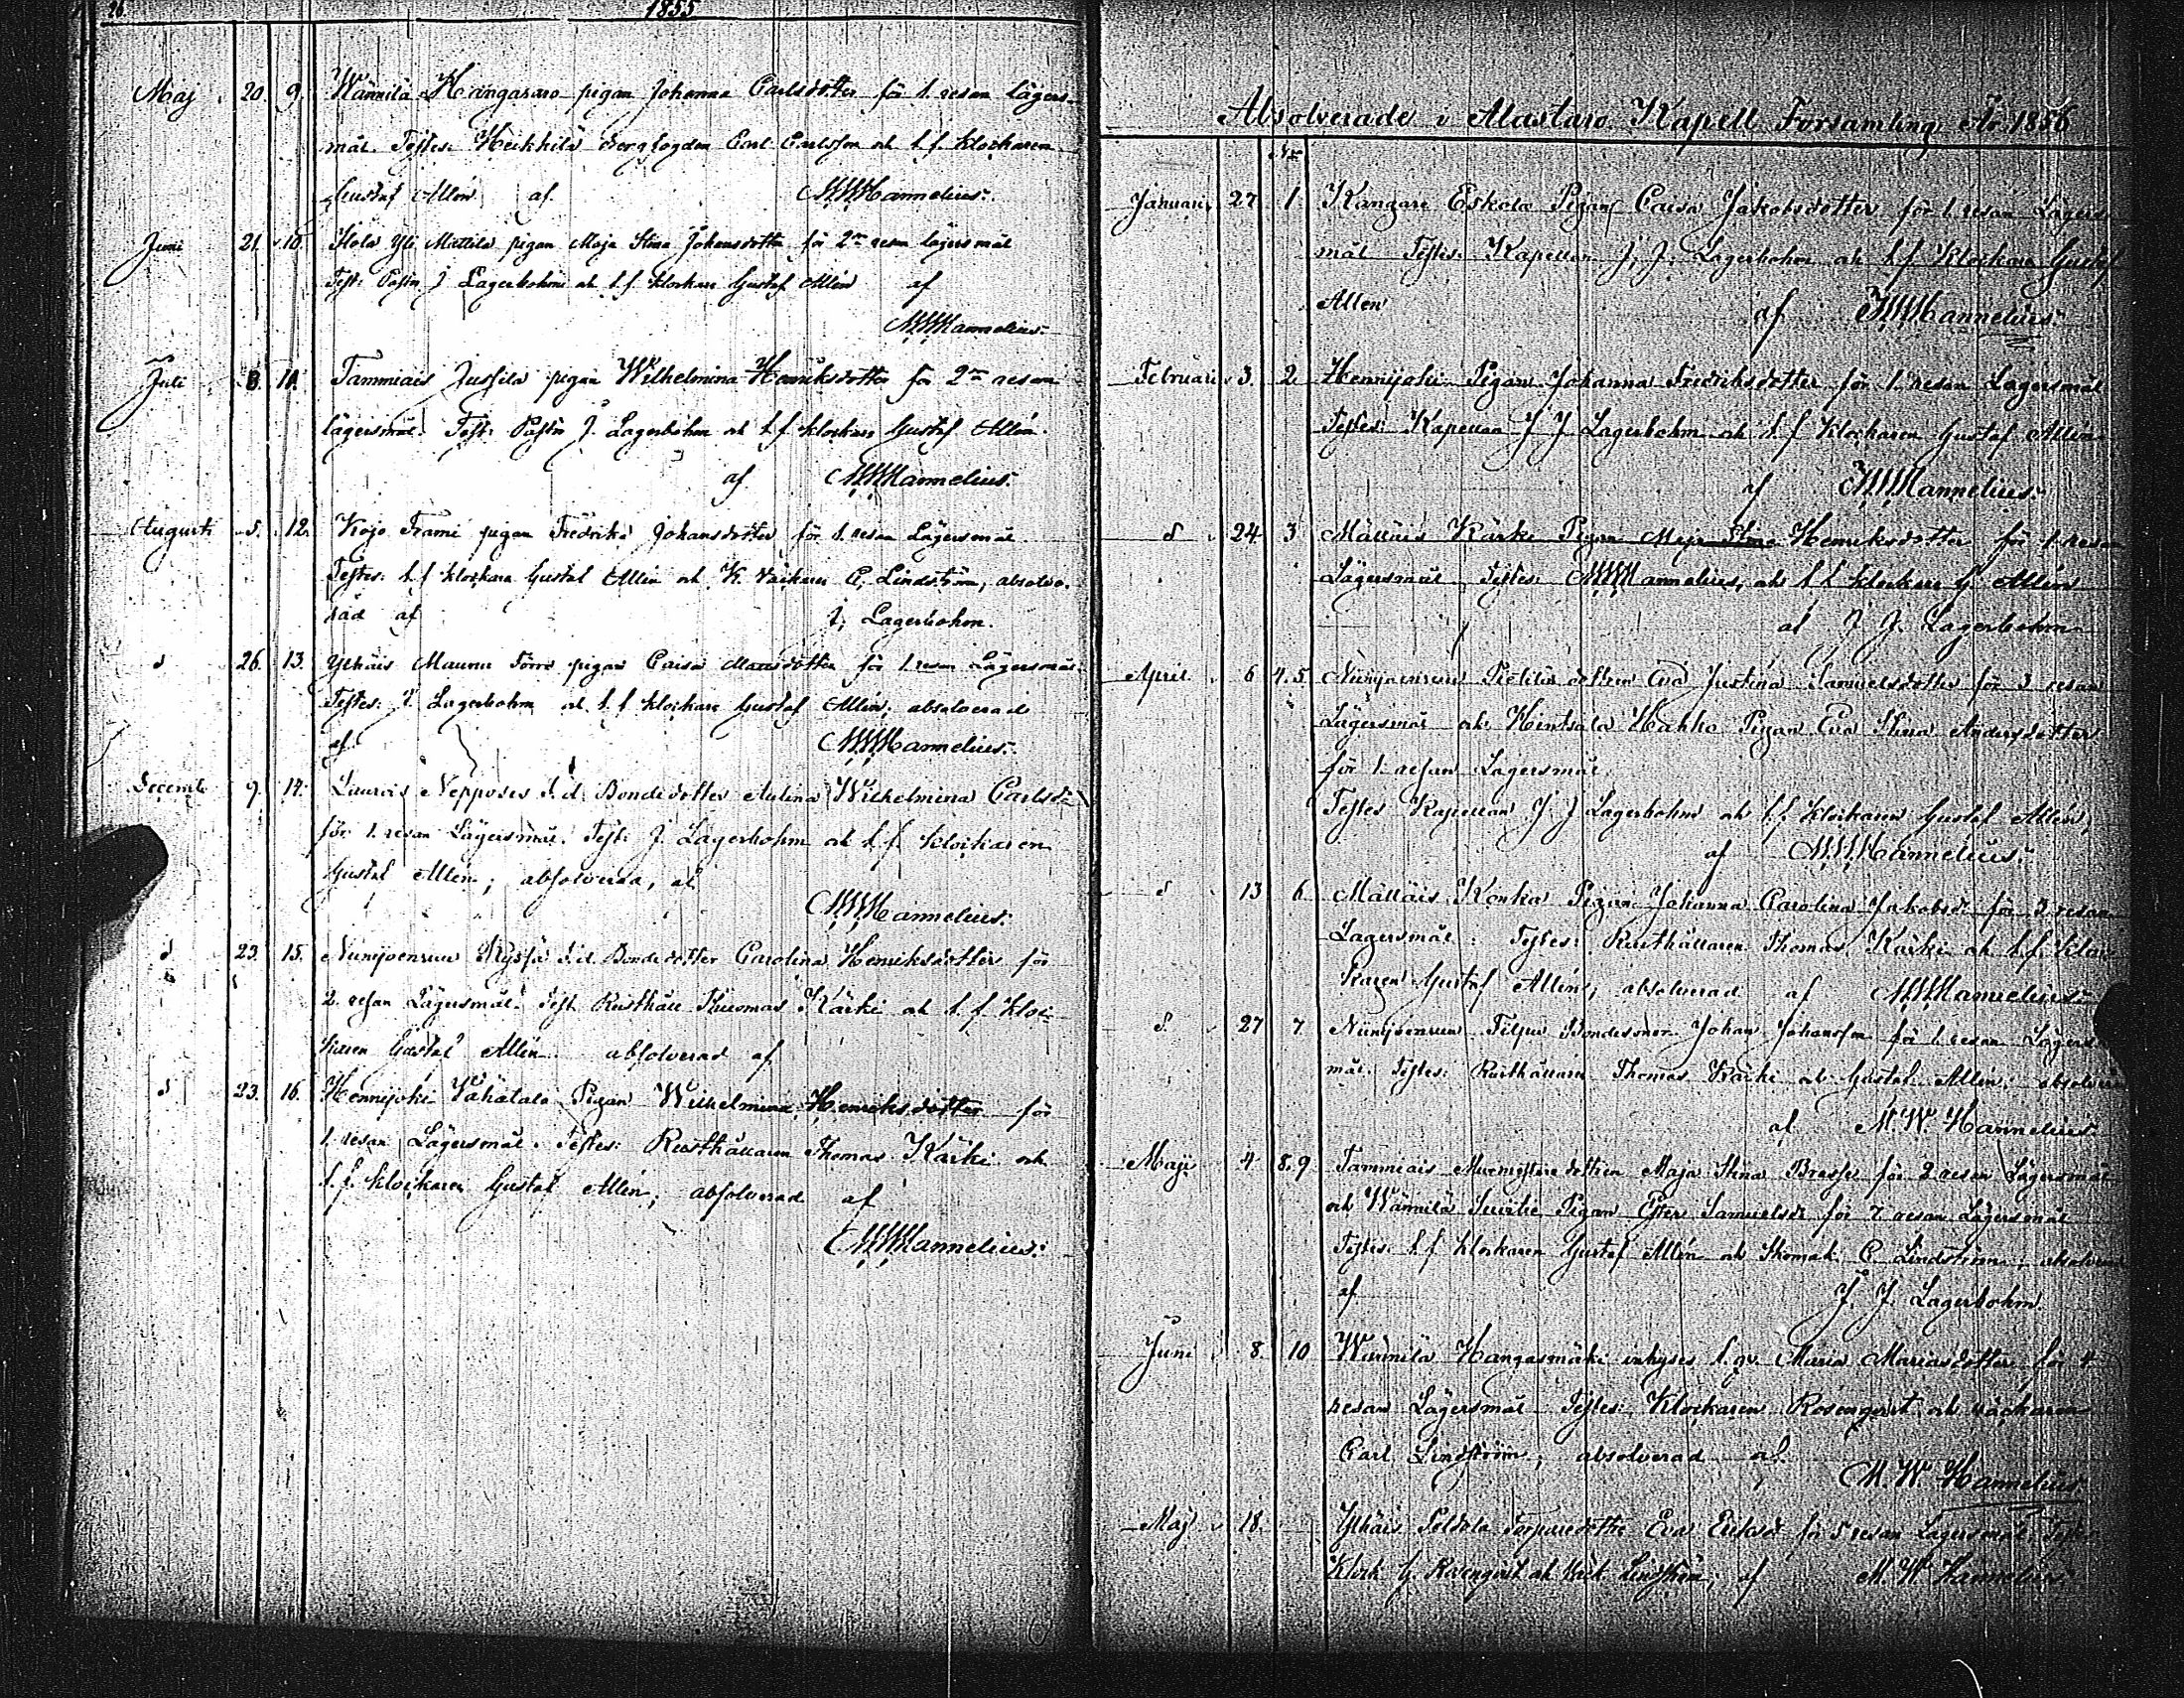 26
1855
Maj 20. 9. Wännilä Kangasaro pigan Johanna Carlsdotter för 1. resan lägers-
mål. Testes: Heikkilä Bergfogden Carl Carlsson och t. f. klockaren
Gustaf Allén af MWHannelius.
Juni 21. 10. Stola Yli Mattila pigan Maja Stina Johansdotter för 2dra resan lägersmål
Test: Pastor J Lagerbohm och t. f. klockare Gustaf Allén af
MWHannelius.
Juli 8. 11. Tammiais Jussila pigan Wilhelmina Henriksdotter för 2dra resan
lägersmål. Test: Pastor J. Lagerbohm och t. f. klockare Gustaf Allén.
af MWHannelius.
Augusti 5. 12. Kojo Frami pigan Fredrika Johansdotter för 1. resan Lägersmål
Testes: t. f klockare Gustaf Allén och K. väckare C. Lindström, absolve-
rad af J. Lagerbohm.
d 26. 13. Ylhäis Maunu Torro pigan Caisa Mattsdotter för 1. resan Lägersmål.
Testes: J. Lagerbohm och t. f klockare Gustaf Allén; absolverad
af MWHannelius.
Decemb 9. 14. Laurois Nepposes d. d. Bondedotter Wilhelmina Carlsdr
för 1. resan Lägersmål. Test: J. Lagerbohm och t. f. klockaren
Gustaf Allén; absolverad, af
MWHannelius.
d 23. 15. Nunijoensuu d. d. Bondedotter Carolina Henriksdotter för
2. resan Lägersmål. Test. Rusthåll Thomas Kärki och t. f. kloc-
karen Gustaf Allén absolverad af
d 23. 16. Hennijoki Wähätalo Pigan Wilhelmina Henriksdotter för
1. resan Lägersmål. Testes: Rusthållaren Thomas Kärki och
t. f. klockaren Gustaf Allén; absolverad af
MWHannelius.
Absolverade i Alastaro Kapell Församling År 1856
No
Januari 27 1 Kangare Eskola Pigan Caisa Jakobsdotter för 1. resan Lägers-
mål Testes: Kapellan J. J. Lagerbohm och t. f klockare Gustaf
Allén af MWHannelius.
Februari 3. 2 Hennijoki Pigan Johanna Fredriksdotter för 1. resan Lägersmål
Testes: Kapellan J J Lagerbohm och t. f Klockaren Gustaf Allén
af MWHannelius.
d 24 3 Mälläis Kärki Pigan Maja Stina Henriksdotter för 1. resan
Lägersmål Testes: MWHannelius, och t. f. klockare G. Allén
af J J. Lagerbohm
April 6 4. 5. Nunijoensuu dottren Eva Justina Samuelsdotter för 3 resan
Lägersmål och Hintsala Hakko Pigan Eva Stina Andersdotter
för 1. resan Lägersmål.
Testes Kapellan J J Lagerbohm och t. f. klockaren Gustaf Allén,
af MWHannelius.
d 13 6 Mälläis Konka Pigan Johanna Carolina Jakobsdr för 3 resan
Lägersmål: Testes: Rusthållaren Thomas Kärki och t. f. kloc-
karen Gustaf Allén; absolverad af MWHannelius
d. 27 7. Nunijoensuu Bondesonen Johan Johansson för 1. resan Lägers-
mål. Testes: Rusthållaren Thomas Kärki och Gustaf Allén; absolverad
af M. W. Hannelius.
Maji 4 8. 9 Tammiais dottren Maja Stina för 2 resan Lägersmål
och Wännilä Pigan Ester Samuelsdr för resan Lägersmål
Testes: t. f klockaren Gustaf Allén och C. Lindström; absolverad
af J. J. Lagerbohm.
Juni 8. 10 Wännilä Kangasmäki inhyses Maria Mariasdotter för 4
resan Lägersmål Testes: Klockaren Rosenqvist och väckaren
Carl Lindström; absolverad af
M. W. Hannelius.
Maj 18. Ylhäis dottr Eva för 5 resan Lägersmål Test
Klock G. Rosenqvist och Väck Lindström; af M. W Hannelius